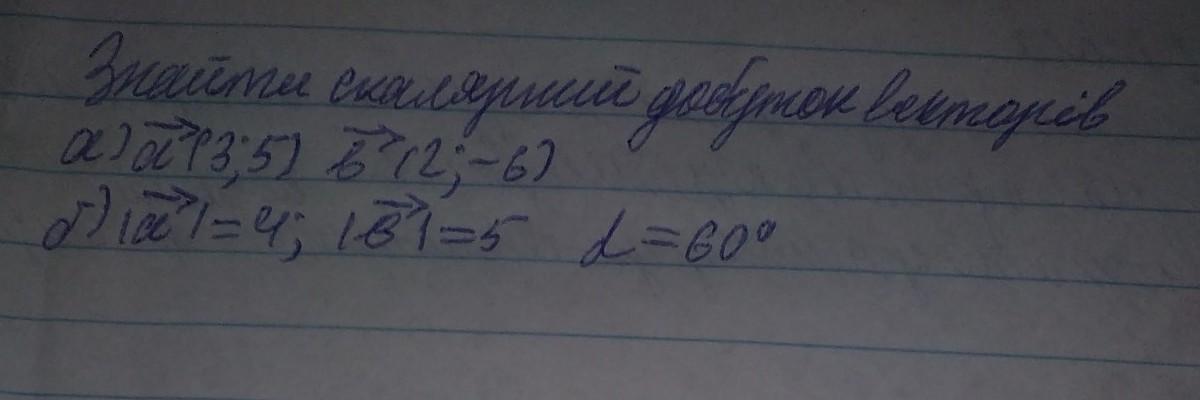 Знайти скалярний добуток векторів
а) a⃗(3;5) b⃗(2;-6)
б) |a⃗|=4; |b⃗|=5 α=60°